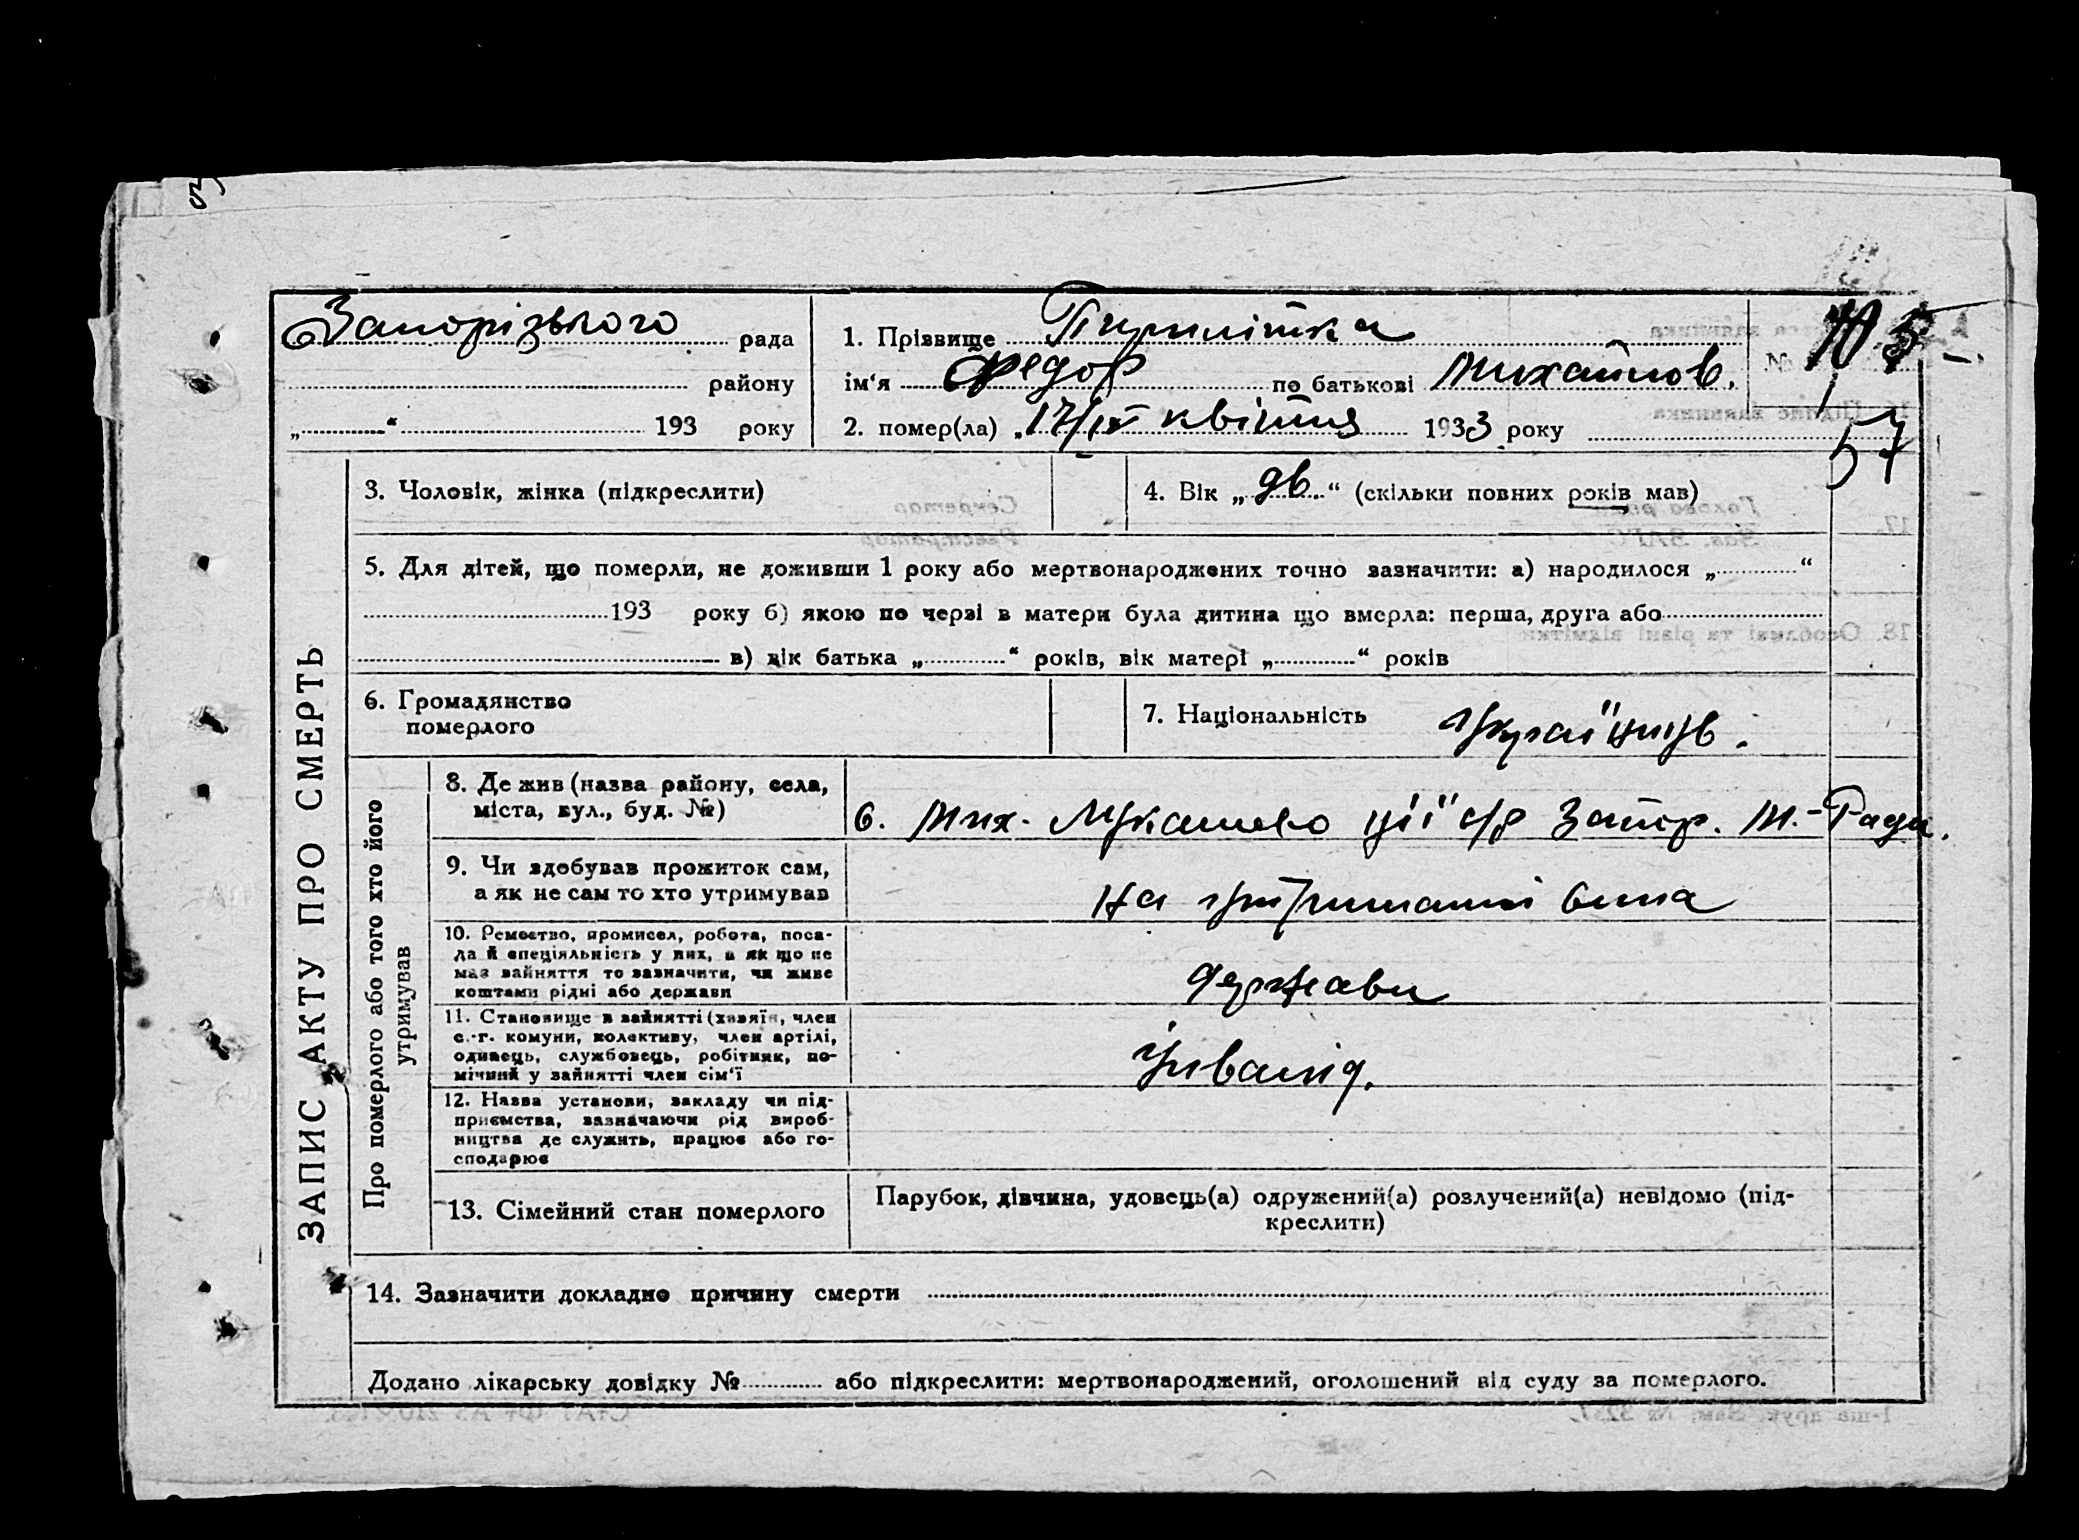 Запорізького рада
району
„ “ 193 року
1. Прізвище
ім‘я Федор по батькові Михайлов.
2. помер(ла) „17/IV квітня 1933 року
№
57
ЗАПИС АКТУ ПРО СМЕРТЬ
3. Чоловік, жінка (підкреслити)
4. Вік „ “ (скільки повних років мав)
5. Для дітей, що померли, не доживши 1 року або мертвонароджених точно зазначити: а) народилося „ “
193 року б) якою по черзі в матери була дитина що вмерла: перша, друга або
в) вік батька „ “ років, вік матері „ “ років
6. Громадянство
померлого
7. Національність українць.
Про померлого або того хто його
утримував
8. Де жив (назва району, села,
міста, вул., буд. №)
с. Мих. Лукашево ції с/р Запор. М.-Ради.
9. Чи здобував прожиток сам,
а як не сам то хто утримував
на утриманні сина
10. Ремество, промисел, робота, поса-
да й спеціяльність у них, а як що не
має зайняття то зазначити, чи живе
коштами рідні або держави
держави
11. Становище в зайнятті (хазяїн, член
с.-г. комуни, колективу, член артілі,
одинець, службовець, робітник, по-
мічний у зайнятті член сім‘ї
інвалід.
12. Назва установи, закладу чи під-
приємства, зазначаючи рід вироб-
ництва де служить, працює або го-
сподарює
13. Сімейний стан померлого
Парубок, дівчина, удовець(а) одружений(а) розлучений(а) невідомо (під-
креслити)
14. Зазначити докладно причину смерти
Додано лікарську довідку № або підкреслити: мертвонароджений, оголошений від суду за померлого.